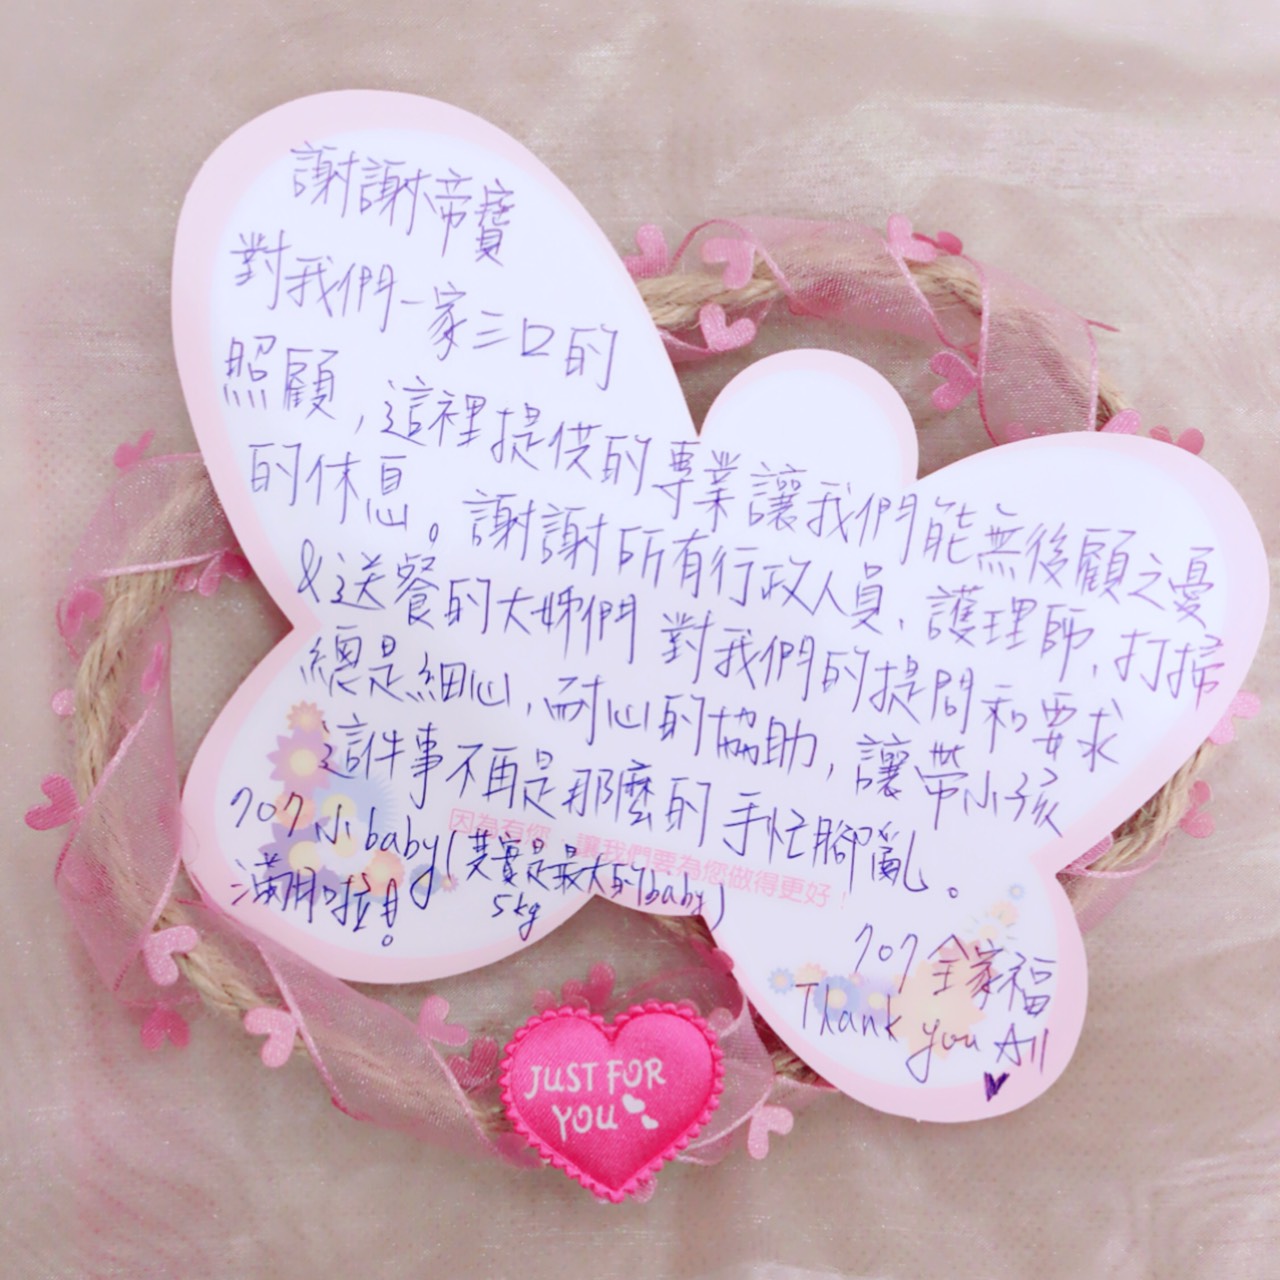 謝謝帝寶
對我們一家三口的
照顧,這裡提供的專業讓我們能無後顧之憂
的休息。謝謝所有行政人員、護理師、打掃
&送餐的大姊們 對我們的提問和要求
總是細心,耐心的協助,讓帶小孩
這件事不再是那麼的手忙腳亂。
因為有您,讓我們要為您做得更好!
707小baby(其實是最大的baby)
5kg
滿月啦!
707全家福
Thank you All
JUST FOR
YOU